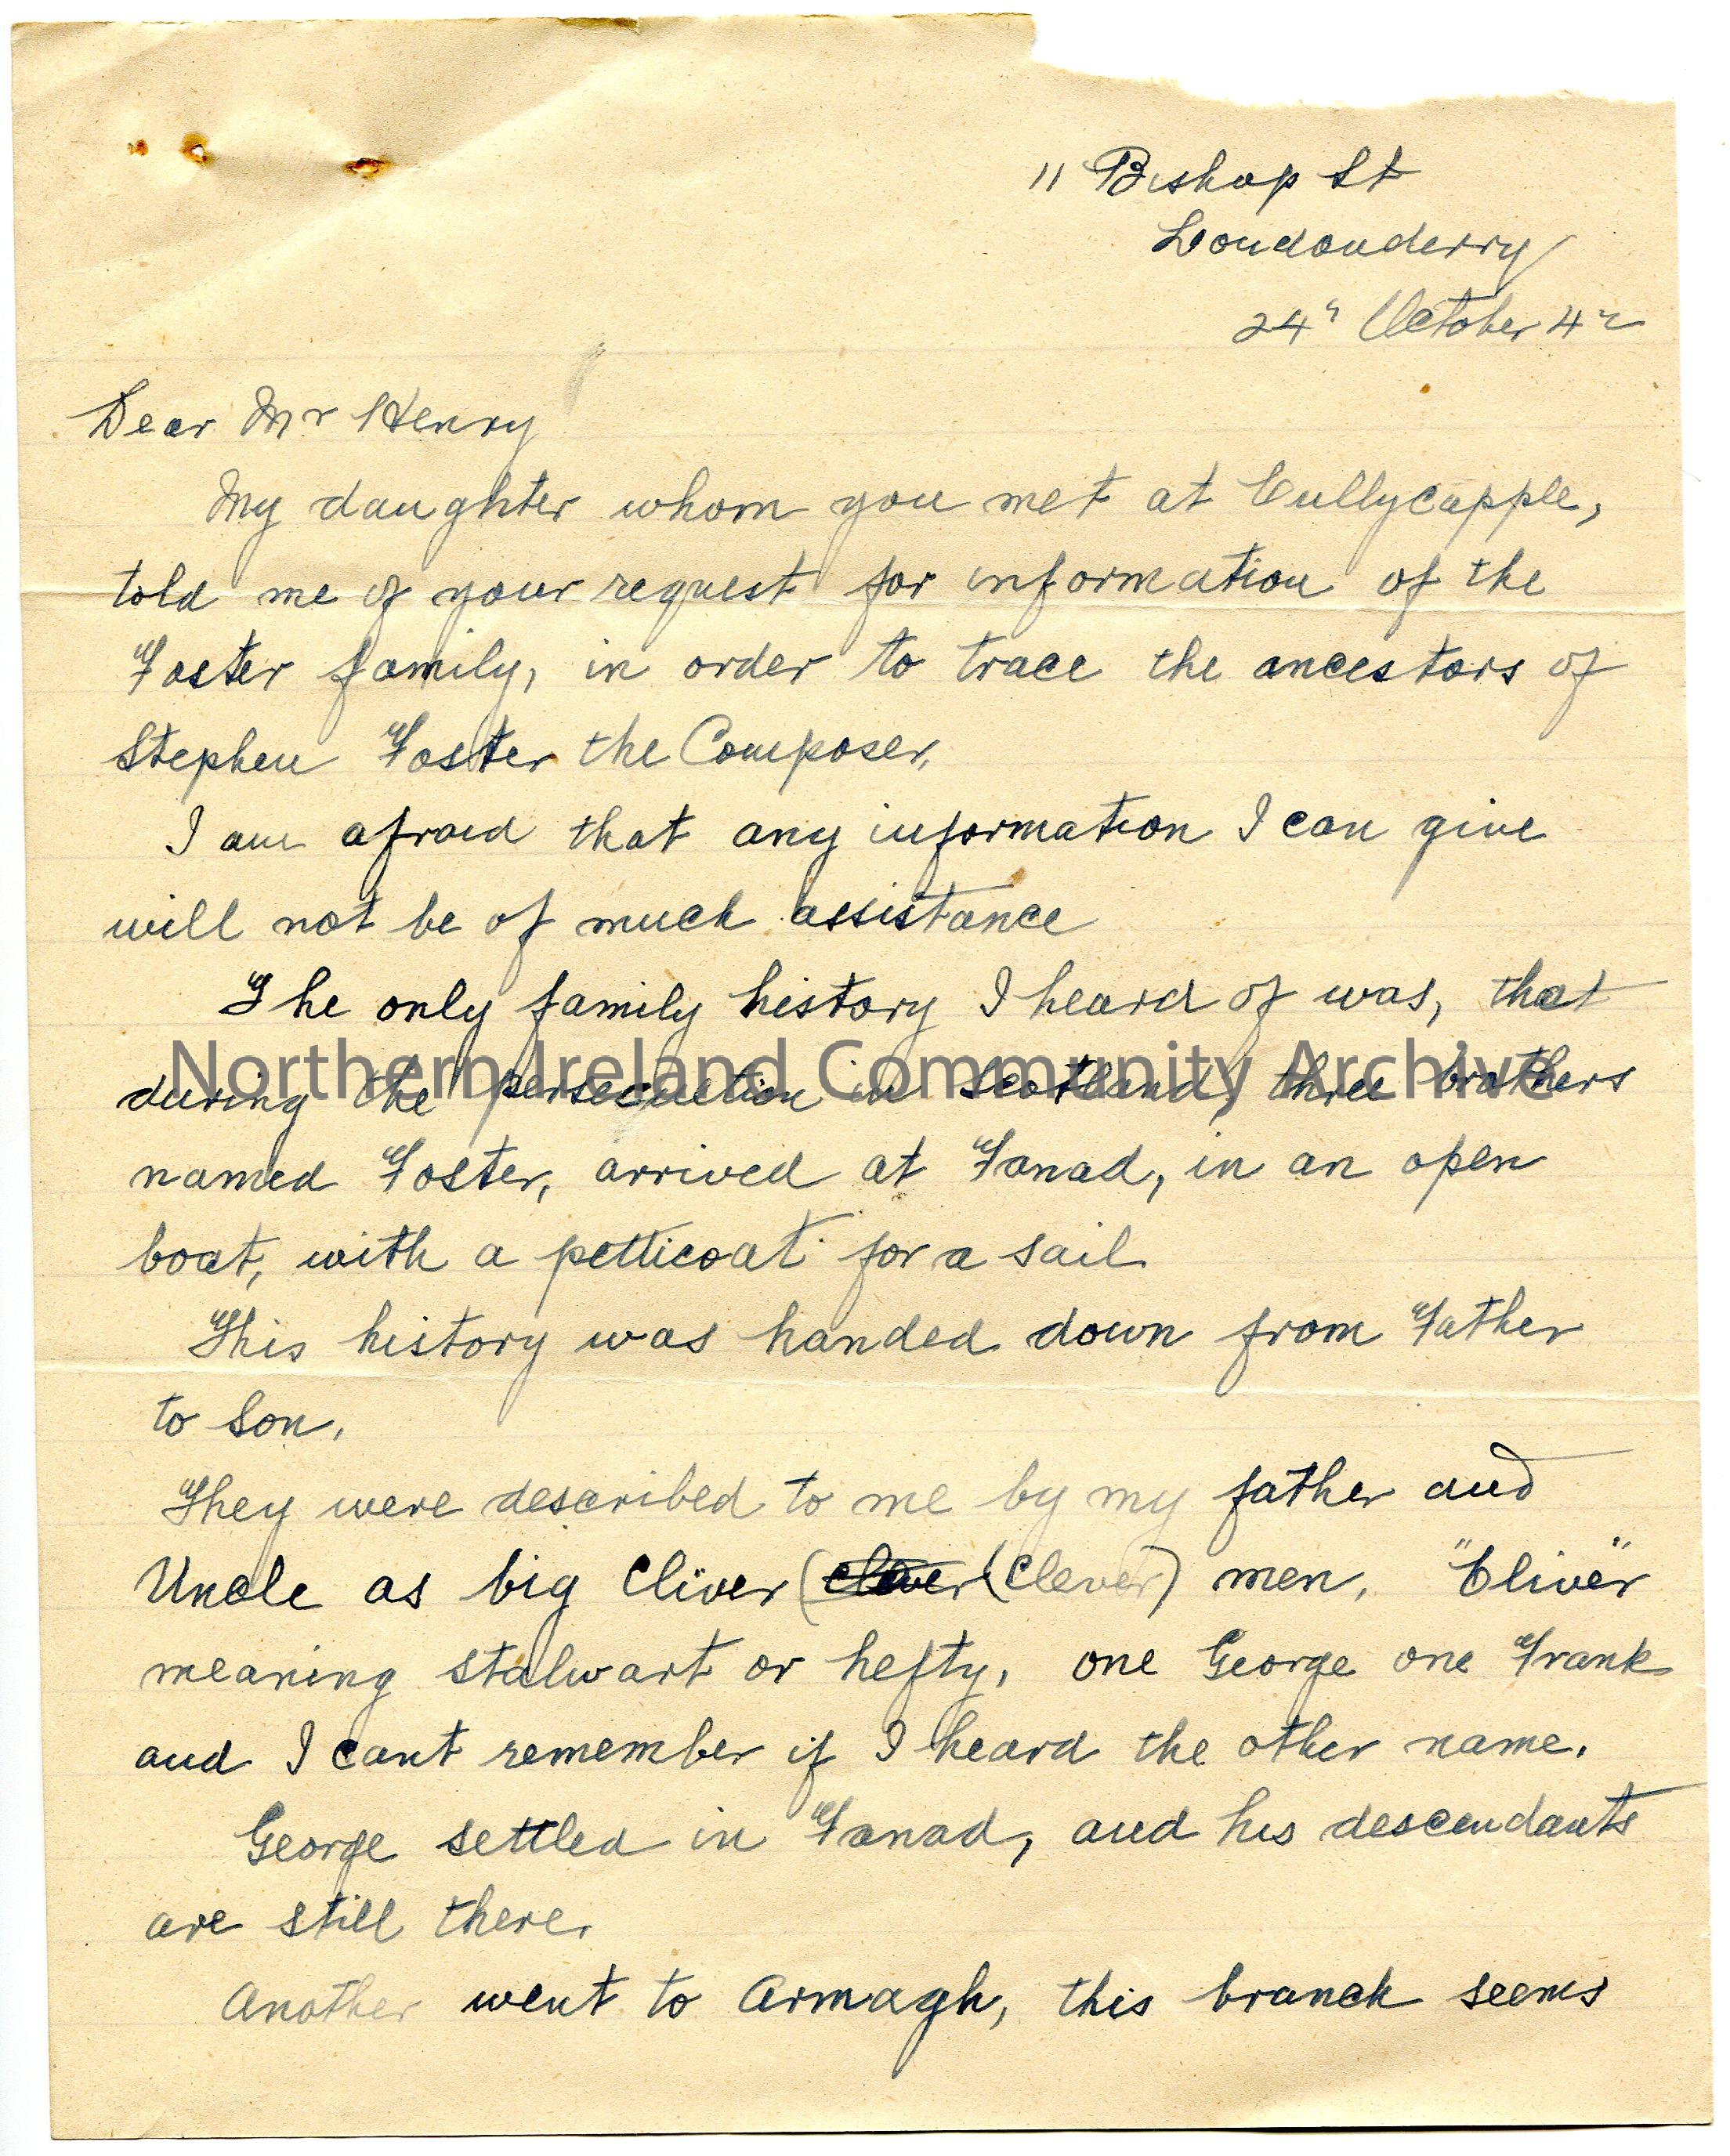 11 Bishop St
Londonderry
24" October 42
Dear Mr Henry
My daughter whom you met at Cullycapple,
told me of your request for information of the
Foster family, in order to trace the ancestors of
Stephen Foster the Composer,
I am afraid that any information I can give
will not be of much assistance
The only family history I heard of was, that
Northern Ireland Community Archive
during the persecution in Scotland, three brothers
named Foster, arrived at Fanad, in an open
boat, with a petticoat for a sail
This history was handed down from Father
to Son,
They were described to me by my father and
Uncle as big Cliver (clever (Clever) men, "Cliver"
meaning stalwart or hefty, one George one Frank
and I cant remember if I heard the other name.
George settled in Fanad, and his descendants
are still there,
Another went to Armagh, this branch seems